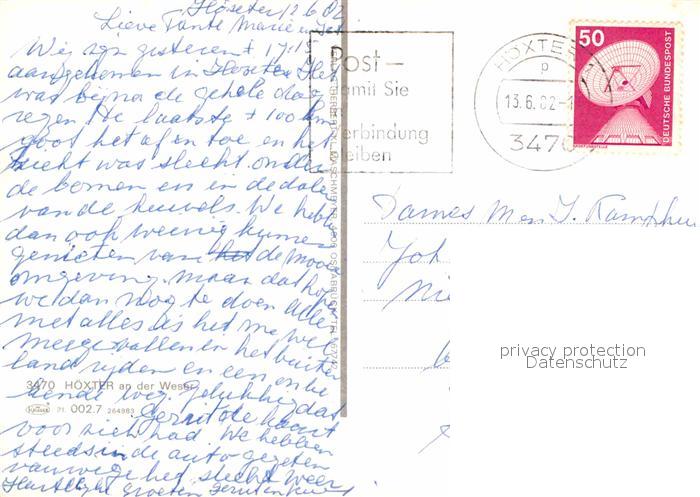 Höxter 12.6.82
Lieve Tante Marie en Jet
We zijn gisteren ± 17.15
aangekomen in Höxter. Het
was bijna de gehele dag
regen. De laatste ± 100 km
goot het af en toe en het
zicht was slecht onder
de bomen en in de dalen
van de heuvels. We hebben
dan ook weinig kunnen
genieten van het de mooie
omgeving. maar dat hopen
we dan nog te doen. Alles
met alles is het me
meegevallen en het buiten
land rijden en een onbe
kende weg. gelukkig dat
Gerrit de kaart
voor zich had. We hebben
steeds in de auto gegeten
vanwege het slecht weer
Hartelijke groeten Gerrit en
Post –
damit Sie
in
Verbindung
bleiben
HÖXTER
p
13.6.82
3470
50
DEUTSCHE BUNDESPOST
Dames M en J. Kamphui
Joh
Ni
privacy protection
Datenschutz
3470 HÖXTER an der Weser
KRÜGER 71. 002.7 264983